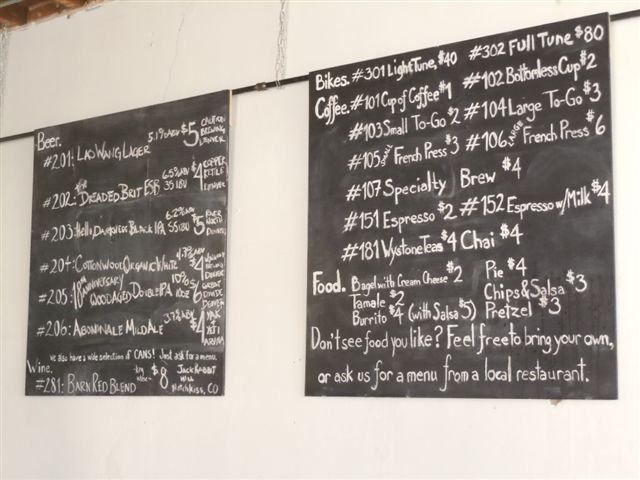 Beer.
#201: LAO WANG LAGER 5.1% ABV $5 CAUTION BREWING DENVER
#202: THE DREADED BRIT ESB 6.5% ABV 35 IBU $4 COPPER KETTLE DENVER
#203: Hello, DARKNESS BLACK IPA 6.2% ABV 55 IBU $5 FOUR NORTH
#204: COTTONWOOD ORGANIC WHITE 4.7% ABV $4 BREWING DENVER
#205: 18th ANNIVERSARY WOOD AGED DOUBLE IPA 10% 10oz $6 GREAT DIVIDE DENVER
#206: ABOMINALE MILD ALE 3.7% ABV $4 YAK & YETI ARVADA
We also have a wide selection of CANS! Just ask for a menu.
Wine.
#281: BARN RED BLEND $8 JACK RABBIT HILL Hotchkiss, CO
Bikes. #301 Light Tune, $40 #302 Full Tune $80
Coffee. #101 Cup of Coffee $1 #102 Bottomless Cup $2
#103 Small To-Go $2 #104 Large To-Go $3
#105 SMALL French Press $3 #106 LARGE French Press $6
#107 Specialty Brew $4
#151 Espresso $2 #152 Espresso w/Milk $4
#181 Wystone Teas $4 Chai $4
Food. Bagel with Cream Cheese $2 Pie $4
Tamale $2 Chips & Salsa $3
Burrito $4 (with Salsa $5) Pretzel $3
Don't see food you like? Feel free to bring your own,
or ask us for a menu from a local restaurant.